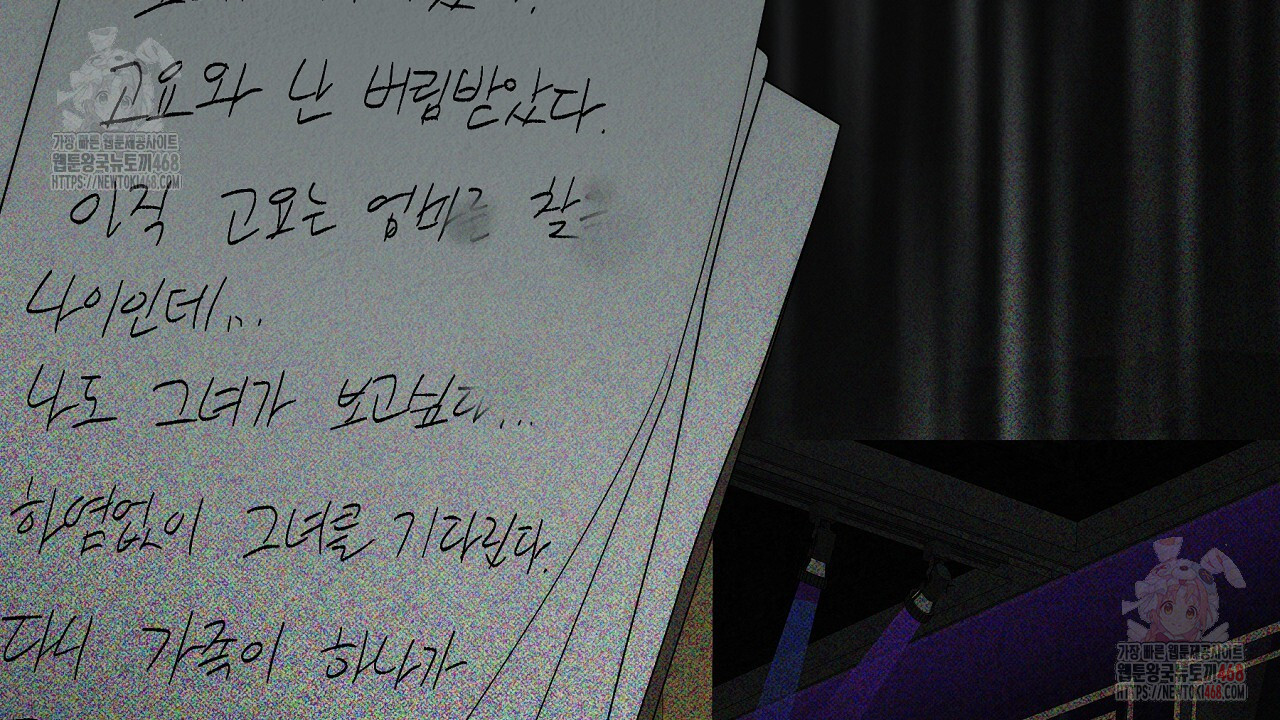 고요와 난 버림받았다.
아직 고요는 엄마를 찾을
나이인데...
나도 그녀가 보고싶다...
하염없이 그녀를 기다린다.
다시 가족이 하나가
가장 빠른 웹툰제공사이트
웹툰왕국뉴토끼468
HTTPS://NEWTOKI468.COM
가장 빠른 웹툰제공사이트
웹툰왕국뉴토끼468
HTTPS://NEWTOKI468.COM